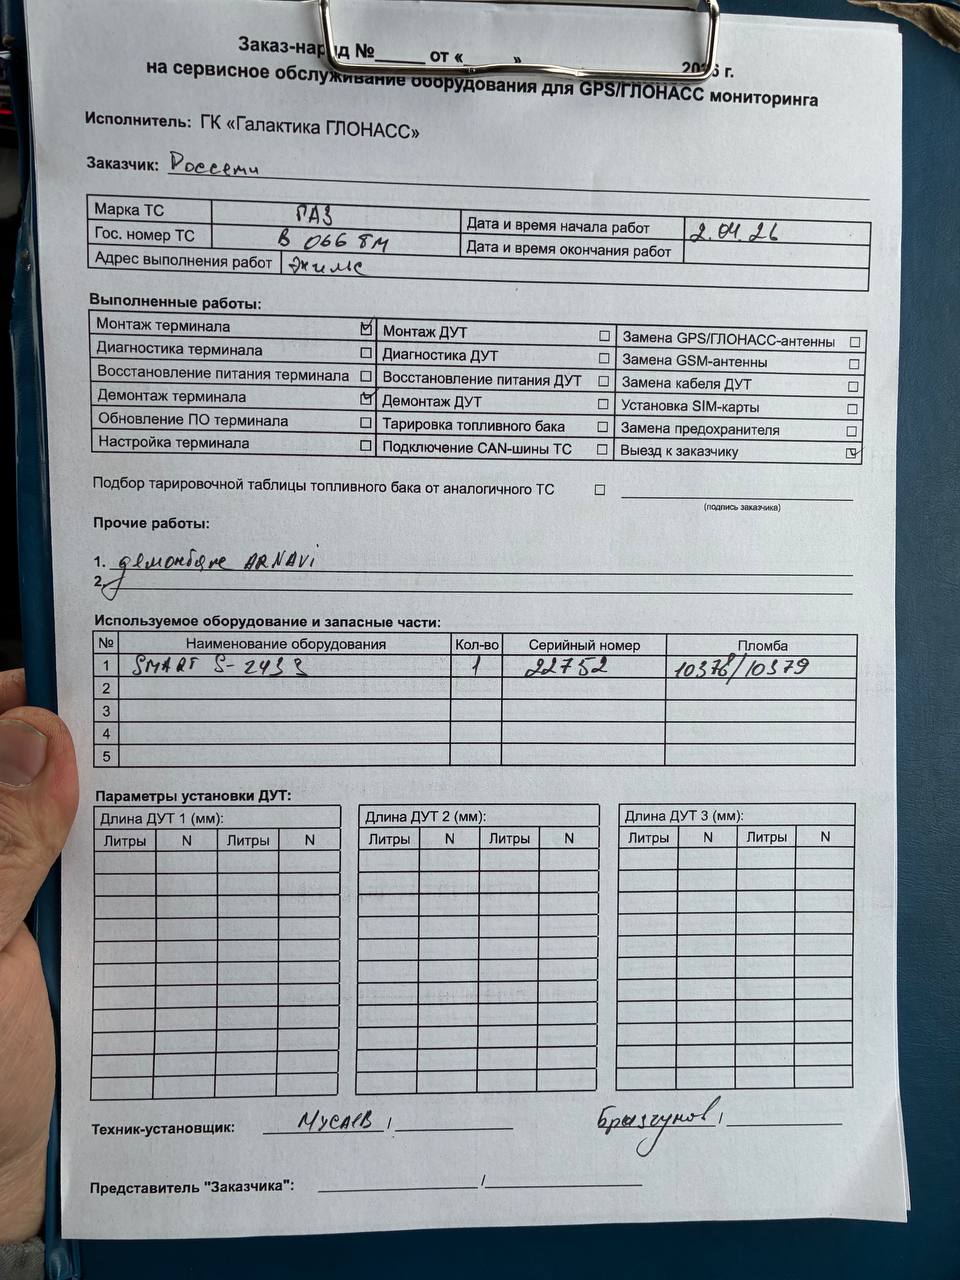 Заказ-наряд №_____ от «_____» 2026 г.
на сервисное обслуживание оборудования для GPS/ГЛОНАСС мониторинга
Исполнитель: ГК «Галактика ГЛОНАСС»
Заказчик: Россети
Марка ТС ГАЗ Дата и время начала работ 2.04.26
Гос. номер ТС В 066 ТМ Дата и время окончания работ
Адрес выполнения работ
Выполненные работы:
Монтаж терминала ☑ Монтаж ДУТ ☐ Замена GPS/ГЛОНАСС-антенны ☐
Диагностика терминала ☐ Диагностика ДУТ ☐ Замена GSM-антенны ☐
Восстановление питания терминала ☐ Восстановление питания ДУТ ☐ Замена кабеля ДУТ ☐
Демонтаж терминала ☑ Демонтаж ДУТ ☐ Установка SIM-карты ☐
Обновление ПО терминала ☐ Тарировка топливного бака ☐ Замена предохранителя ☐
Настройка терминала ☐ Подключение CAN-шины ТС ☐ Выезд к заказчику ☑
Подбор тарировочной таблицы топливного бака от аналогичного ТС ☐
(подпись заказчика)
Прочие работы:
1. демонтаж ARNAVi
2.
Используемое оборудование и запасные части:
№ Наименование оборудования Кол-во Серийный номер Пломба
1 SMART S-2433 1 22752 10378/10379
2
3
4
5
Параметры установки ДУТ:
Длина ДУТ 1 (мм): Длина ДУТ 2 (мм): Длина ДУТ 3 (мм):
Литры N Литры N Литры N Литры N Литры N Литры N
Техник-установщик: Мусаев / Брызгунов /
Представитель "Заказчика": /